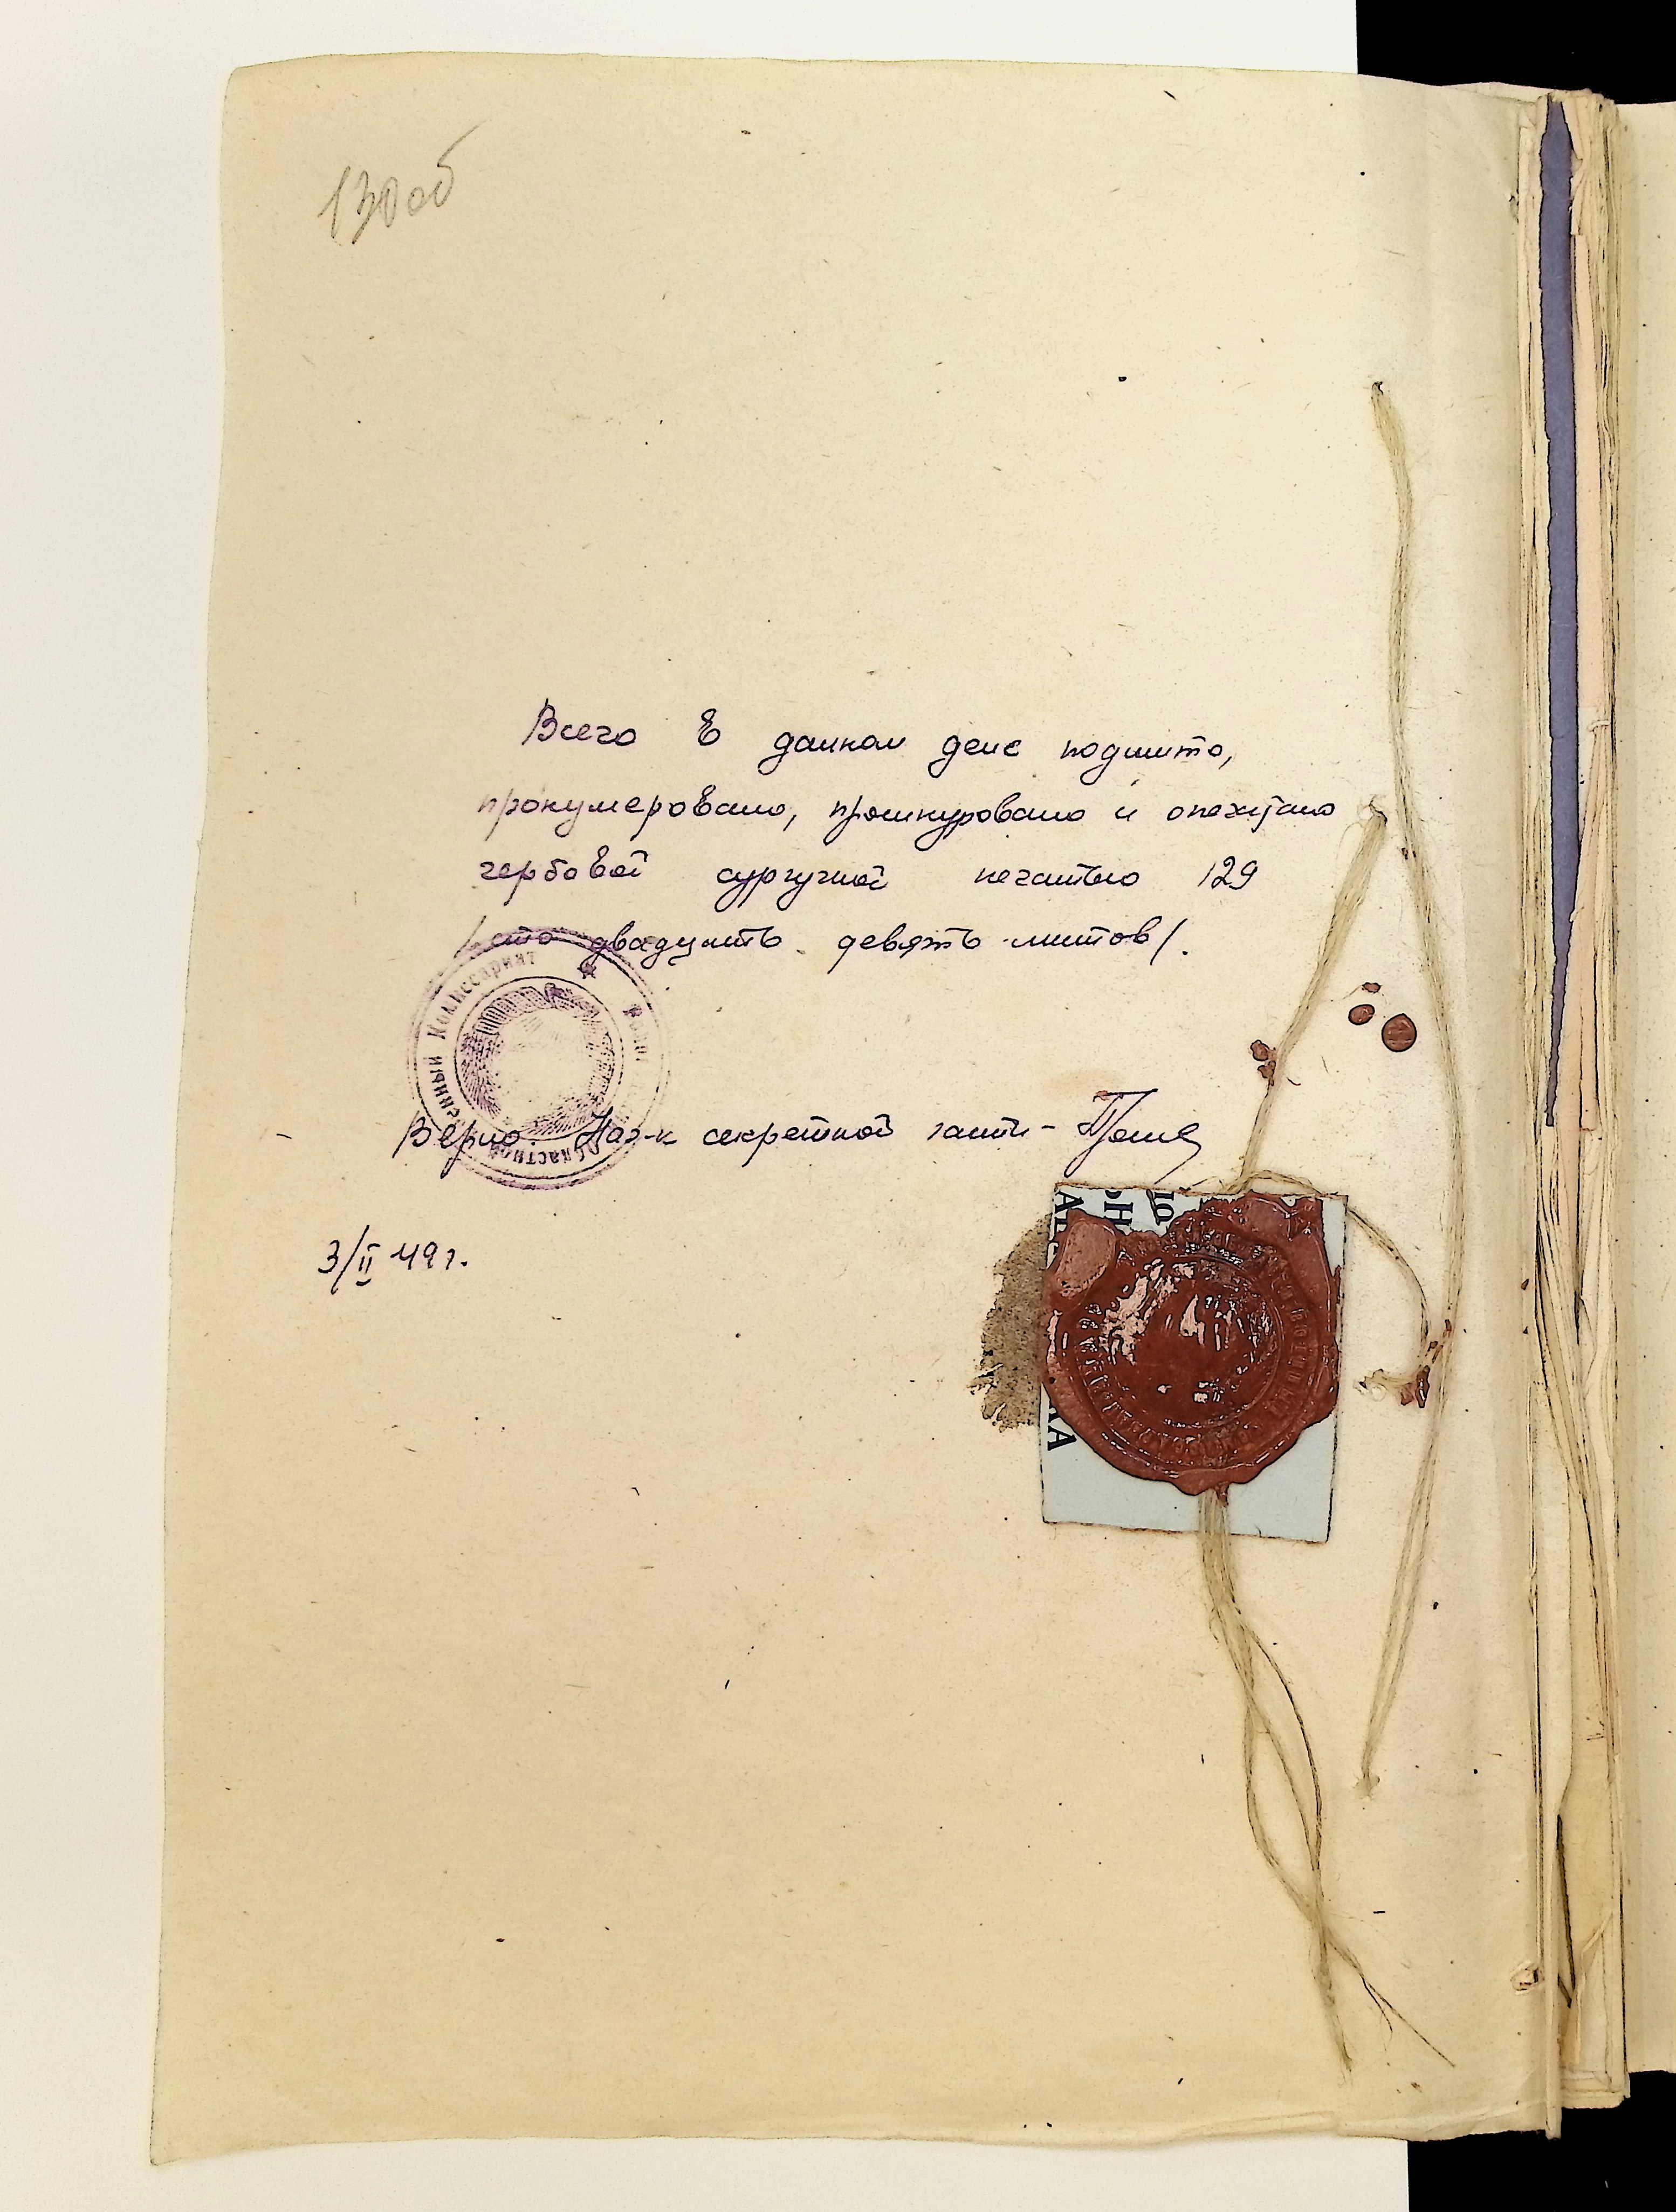 130об
Всего в данном деле подшито,
пронумеровано, прошнуровано и опечатано
гербовой сургучной печатью 129
/сто двадцать девять листов/.
Военный Комиссариат
Областной
Верно: Нач-к секретной части -
3/II 49 г.